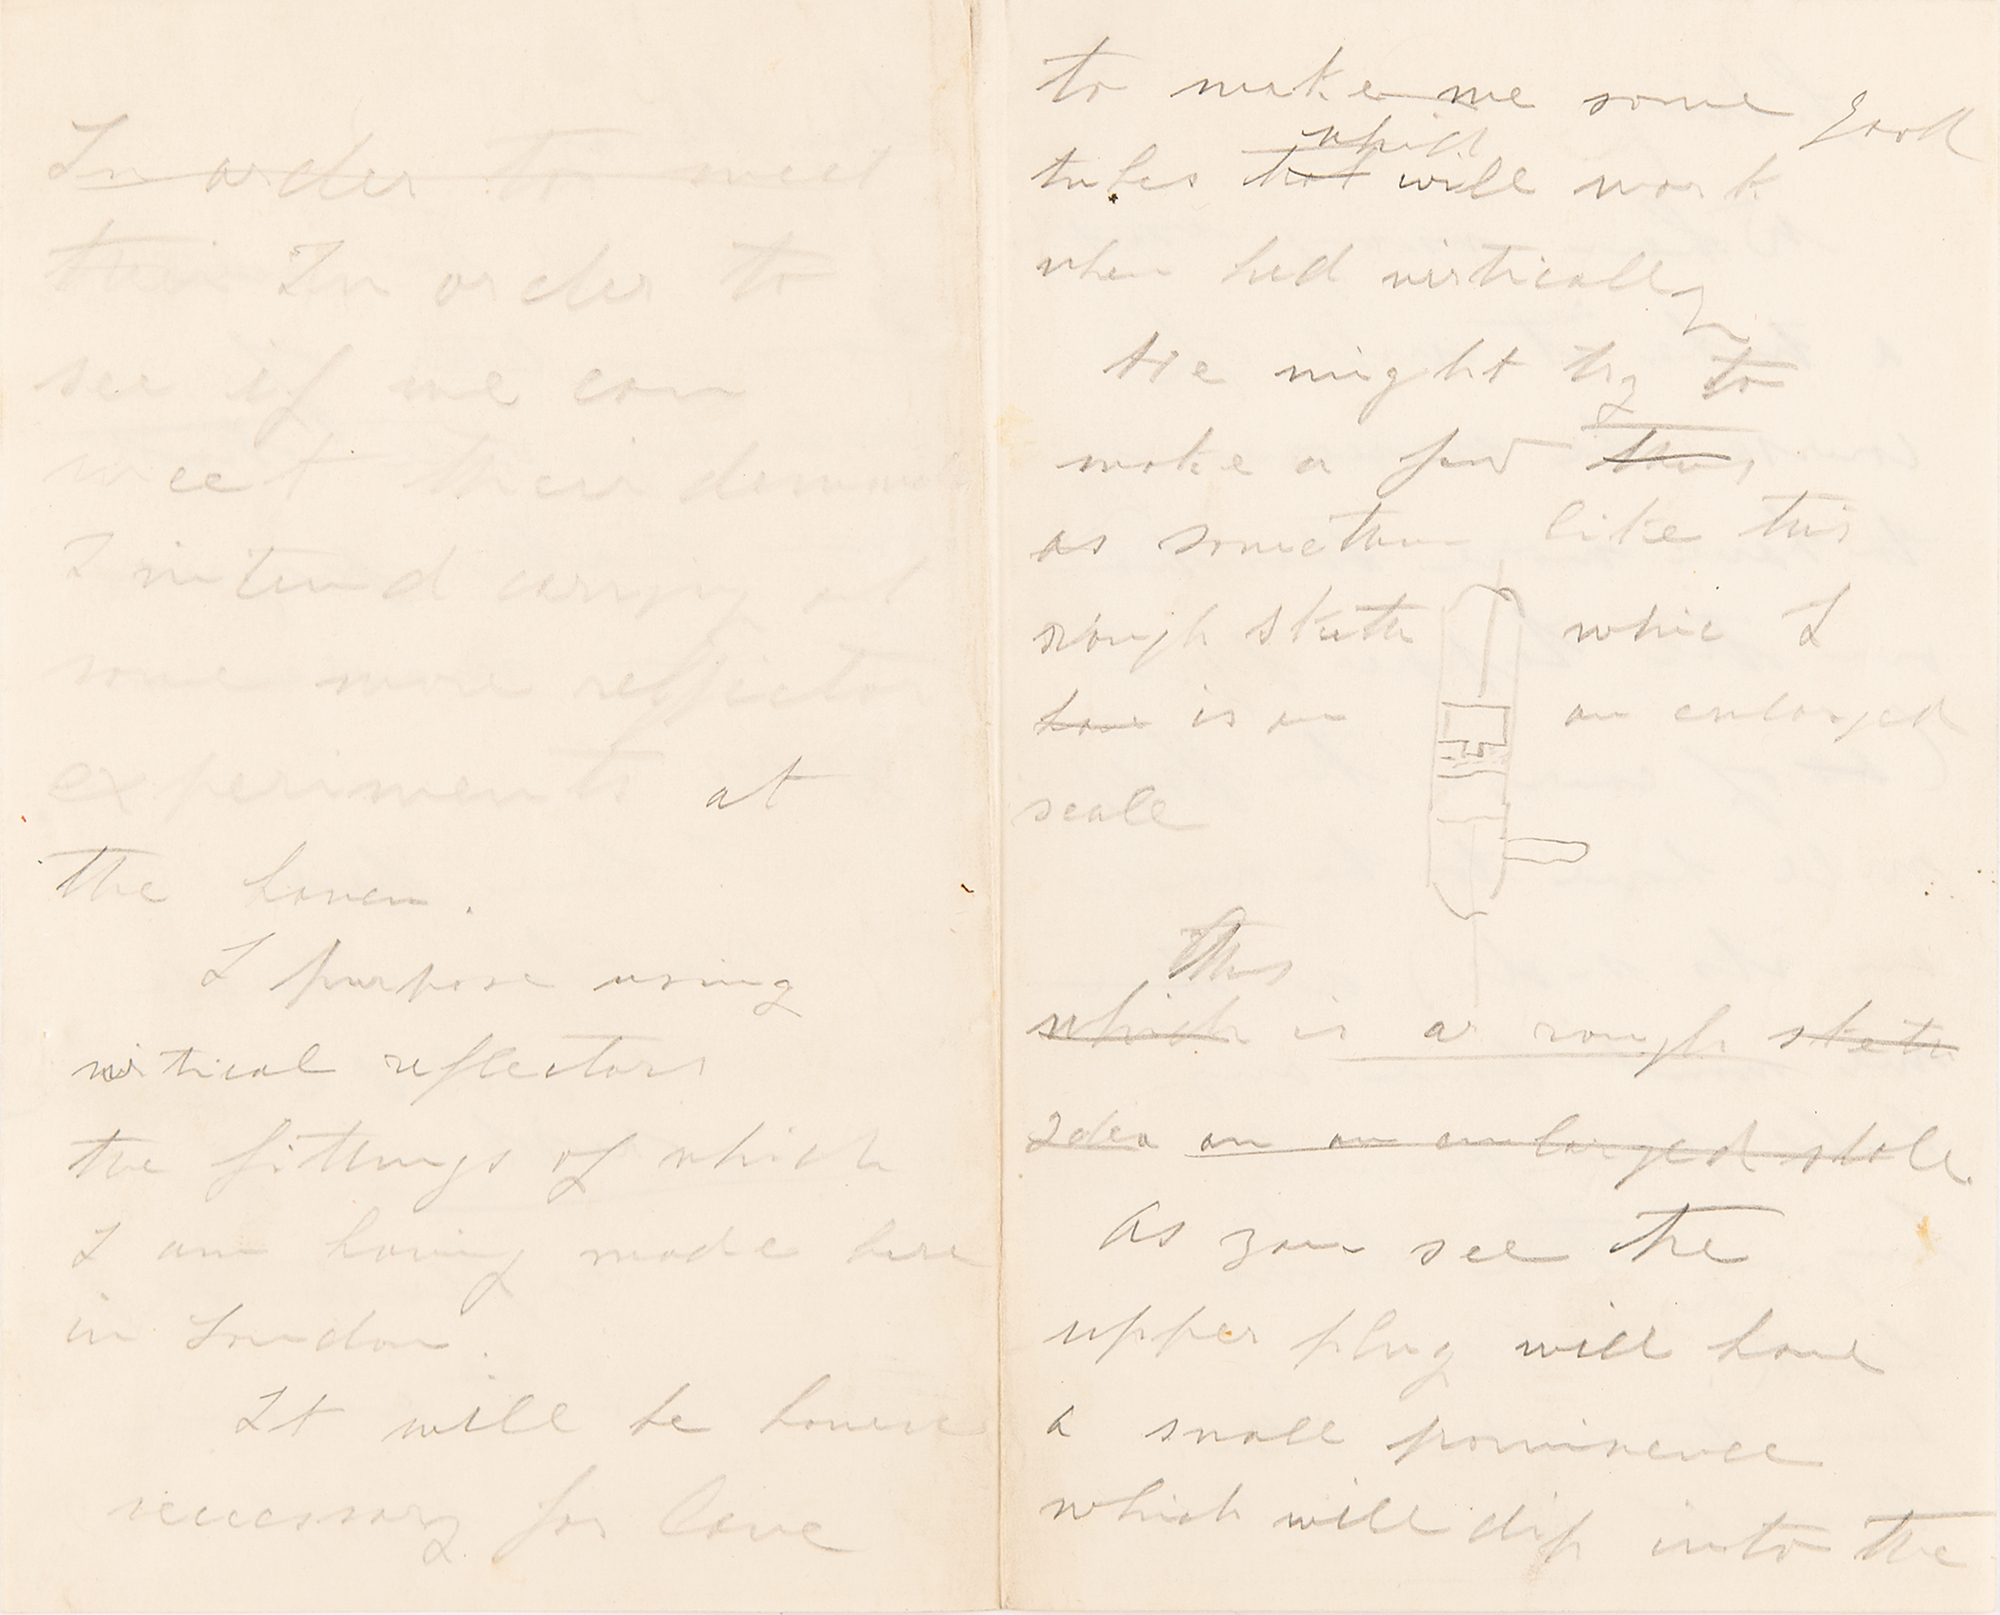 In order to meet
their In order to
see if we can
meet their demands
I intend carrying out
some more reflector
experiments at
the haven.
I purpose using
virtical reflectors
the fittings of which
I am having made here
in London.
It will be however
necessary for
to make me some good
which
tubes that will work
when hed virtically
He might try to
make a few this
as somethin like this
rough sketh whic I
have is on an enlarged
scale
This
which is a rough sketh
Idea on an enlarged skale.
As you see the
upper plug will have
a small prominence
which will dip into the